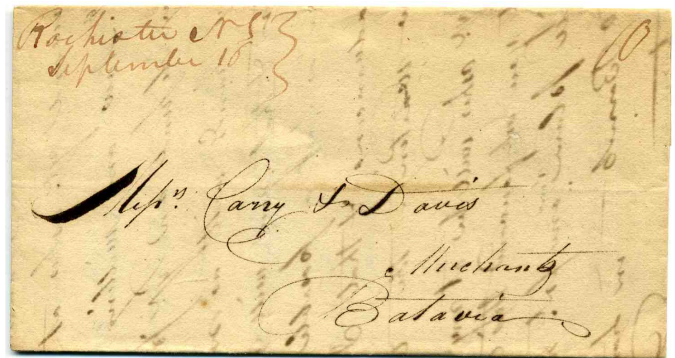 Rochister NY
September 16
10
Messrs. Carry & Davis
Merchants
Batavia